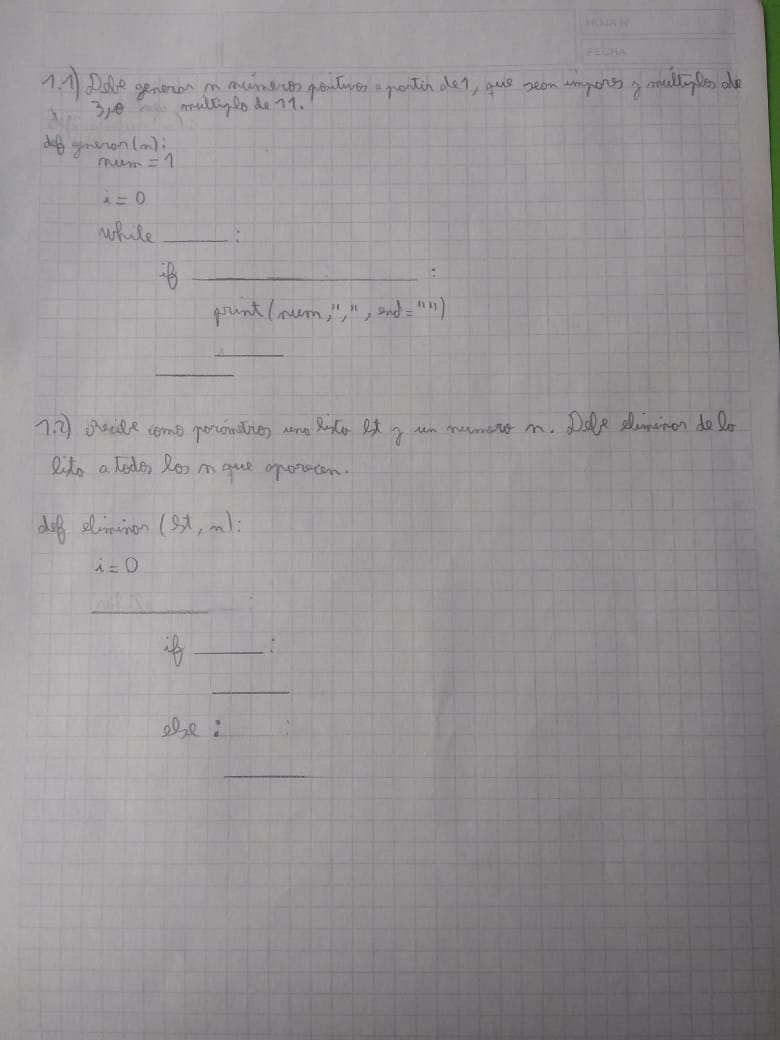 HOJA Nº
FECHA
1.1) Debe generar n números positivos a partir de 1, que sean impares y múltiplos de
3, o múltiplo de 11.
def generar(n):
num = 1
i = 0
while ______ :
if ____________________ :
print(num,",", end="")
______
_______
1.2) recibe como parámetros una lista lst y un numero n. Debe eliminar de la
lista a todos los n que aparecen.
def eliminar (lst, n):
i = 0
___________
if ______ :
_______
else :
________